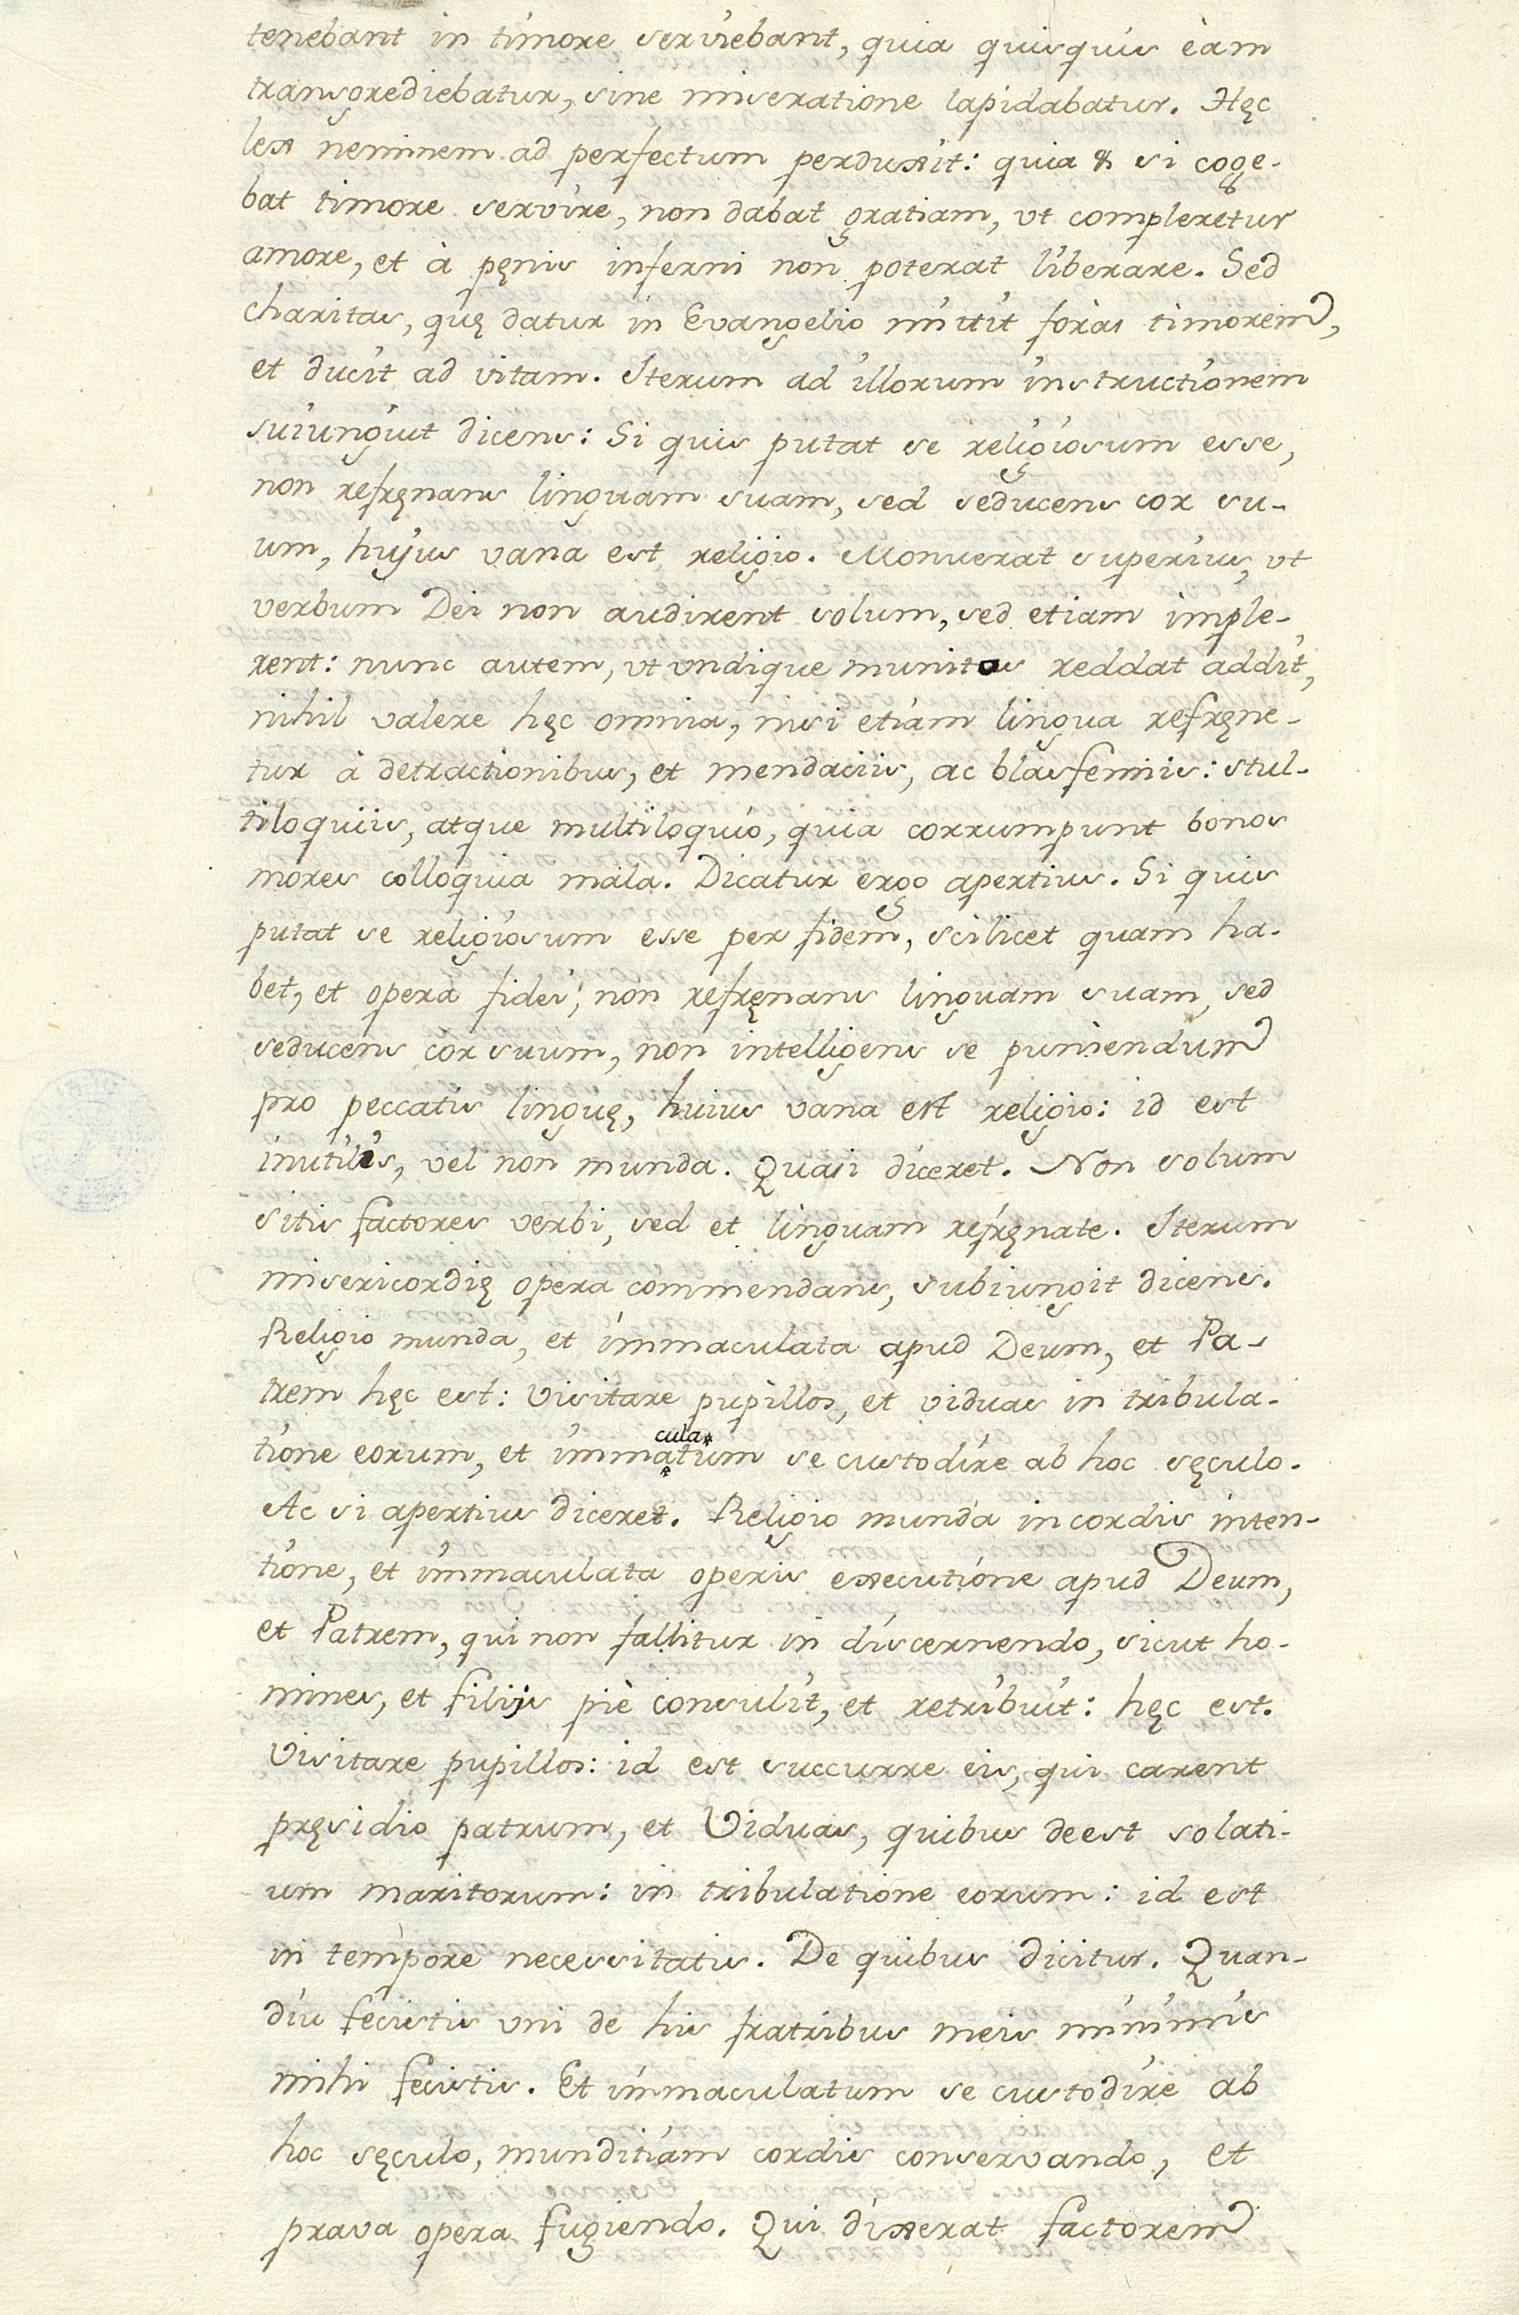 tenebant in timore serviebant, quia quisquis èam
transgrediebatur, sine miseratione lapidabatur. Hęc
lex neminem ad perfectum perduxit: quia & si coge-
bat timore servire, non dabat gratiam, vt compleretur
amore, et à pęnis inferni non poterat liberare. Sed
charitas, quę datur in Evangelio mittit foràs timorem,
et ducit ad vitam. Iterum ad illorum instructionem
suiungiut dicens: Si quis putat se religiosum esse,
non refręnans linguam suam, sed seducens cor su-
um, hujus vana est religio. Monuerat superius, vt
verbum Dei non audirent solum, sed etiam imple-
rent: nunc autem, vt vndique munitos reddat addit,
nihil valere hęc omnia, nisi etiam lingua refręne-
tur à detractionibus, et mendaciis, ac blasfemiis: stul-
tiloquiis, atque multiloquio, quia corrumpunt bonos
mores colloquia mala. Dicatur ergo apertius. Si quis
putat se religiosum esse per fidem, scilicet quam ha-
bet, et opera fidei, non refręnans linguam suam, sed
seducens cor suum, non intelligens se puniendum
pro peccatis linguę, huius vana est religio: id est
inutilis, vel non munda. Quasi diceret. Non solum
sitis factores verbi, sed et linguam refręnate. Iterum
misericordię opera commendans, subiungit dicens.
Religio munda, et immaculata apud Deum, et Pa-
trem hęc est: visitare pupillos, et viduas in tribula-
cula*
tione eorum, et immatum se custodire ab hoc sęculo.
Ac si apertius diceret. Religio munda in cordis inten-
tione, et immaculata operis executione apud Deum,
et Patrem, qui non fallitur in discernendo, sicut ho-
mines, et filijs piè consulit, et retribuit: hęc est.
Visitare pupillos: id est succurre eis, qui carent
pręsidio patrum, et Viduas, quibus deest solati-
um maritorum: in tribulatione eorum: id est
in tempore necessitatis. De quibus dicitur. Quan-
diu fecistis vni de his fratribus meis minimis
mihi fecistis. Et immaculatum se custodire ab
hoc sęculo, munditiam cordis conservando, et
prava opera fugiendo. Qui dixerat factorem